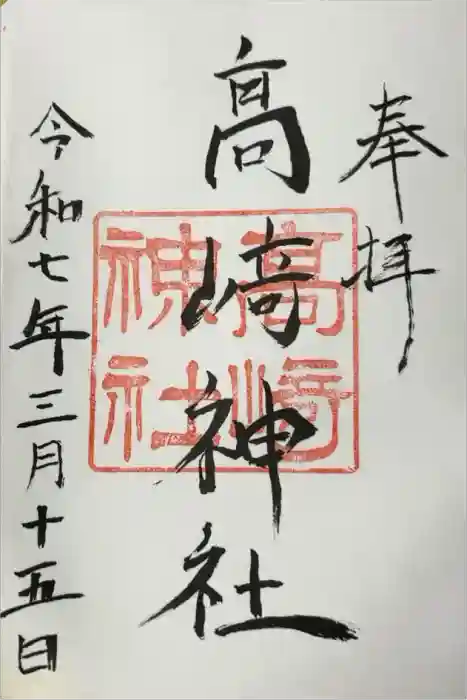 奉拝
高崎神社
高崎
神社
令和七年三月十五日